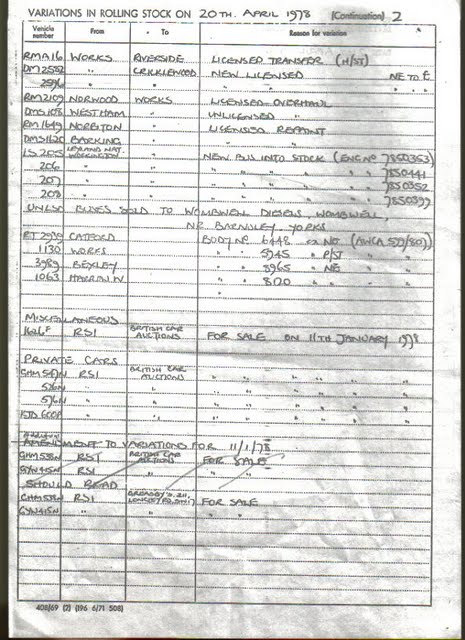 VARIATIONS IN ROLLING STOCK ON 20TH. APRIL 1978 (Continuation) 2
Vehicle number From To Reason for variation
RMA16 WORKS RIVERSIDE LICENSED TRANSFER (H/ST)
DM2592 " CRICKLEWOOD NEW LICENSED NE TO E
2596 " " " " " " "
RM2109 NORWOOD WORKS LICENSED OVERHAUL
DMS108 WESTHAM " UNLICENSED "
RM1649 NORBITON " LICENSED REPAINT
DMS1620 BARKING " " "
LS205 LEYLAND NAT. WORKINGTON NEW BUS INTO STOCK (ENG Nº 7850353)
206 " " " " " " " 7850441
207 " " " " " " " 7850352
208 " " " " " " " 7850377
UNLSD BUSES SOLD TO WOMBWELL DIESELS, WOMBWELL,
NR BARNSLEY, YORKS
RT2989 CATFORD BODY Nº 6448 NO (AWCA 577/801)
1130 WORKS " " 5945 " P/ST "
3989 BEXLEY " " 8965 " NE "
1063 HARROW W " " 8120 " " "
MISCELLANEOUS
1626F RSI BRITISH CAR AUCTIONS FOR SALE ON 11TH JANUARY 1978
PRIVATE CARS
GHM RSI BRITISH CAR AUCTIONS " " " " "
" " " " " " "
" " " " " " "
600P " " " " " " "
AMENDMENT TO VARIATIONS FOR 11/1/78
GHM538N RSI BRITISH CAR AUCTIONS FOR SALE
GYN415N RSI " "
SHOULD READ
GHM538N RSI FOR SALE
GYN415N " " " "
408/69 (2) (196 6/71 508)